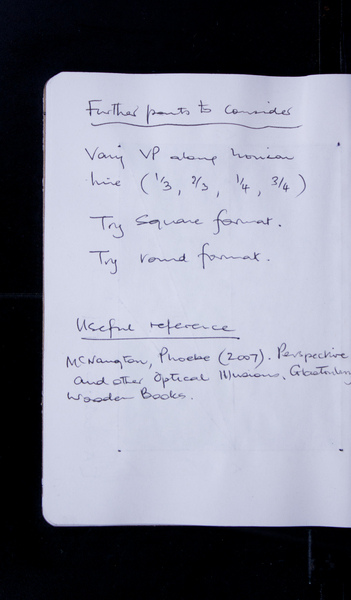 Further points to consider
Vary VP along horizon
line (1/3, 2/3, 1/4, 3/4)
Try square format.
Try round format.
Useful reference
McNaughton, Phoebe (2007). Perspective
and other Optical Illusions, Glastonbury
Wooden Books.